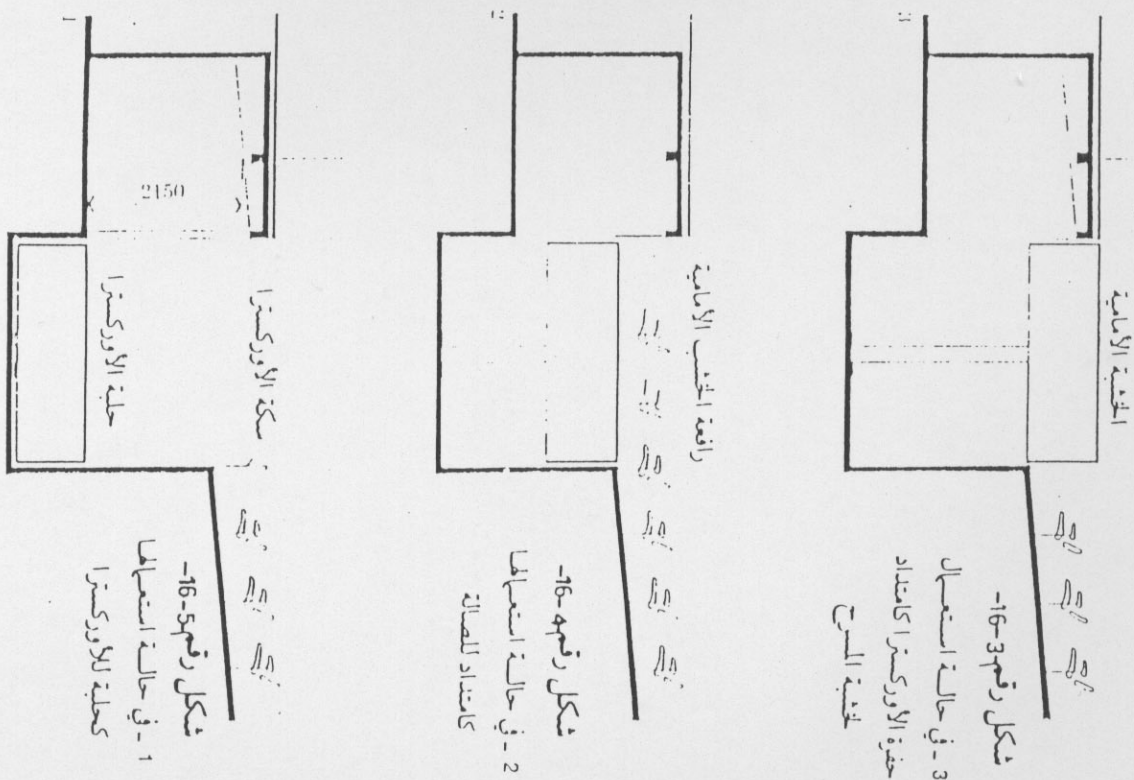 الخشبة الأمامية
شكل رقم 3-16-
3 - في حالة استعمال
حفرة الأوركسترا كامتداد
لخشبة المسرح
رافعة الخشب الأمامية
شكل رقم 4-16-
2 - في حالة استعمالها
كامتداد للصالة
2150
سكة الأوركسترا
حلبة الأوركسترا
شكل رقم 5-16-
1 - في حالة استعمالها
كحلبة للأوركسترا